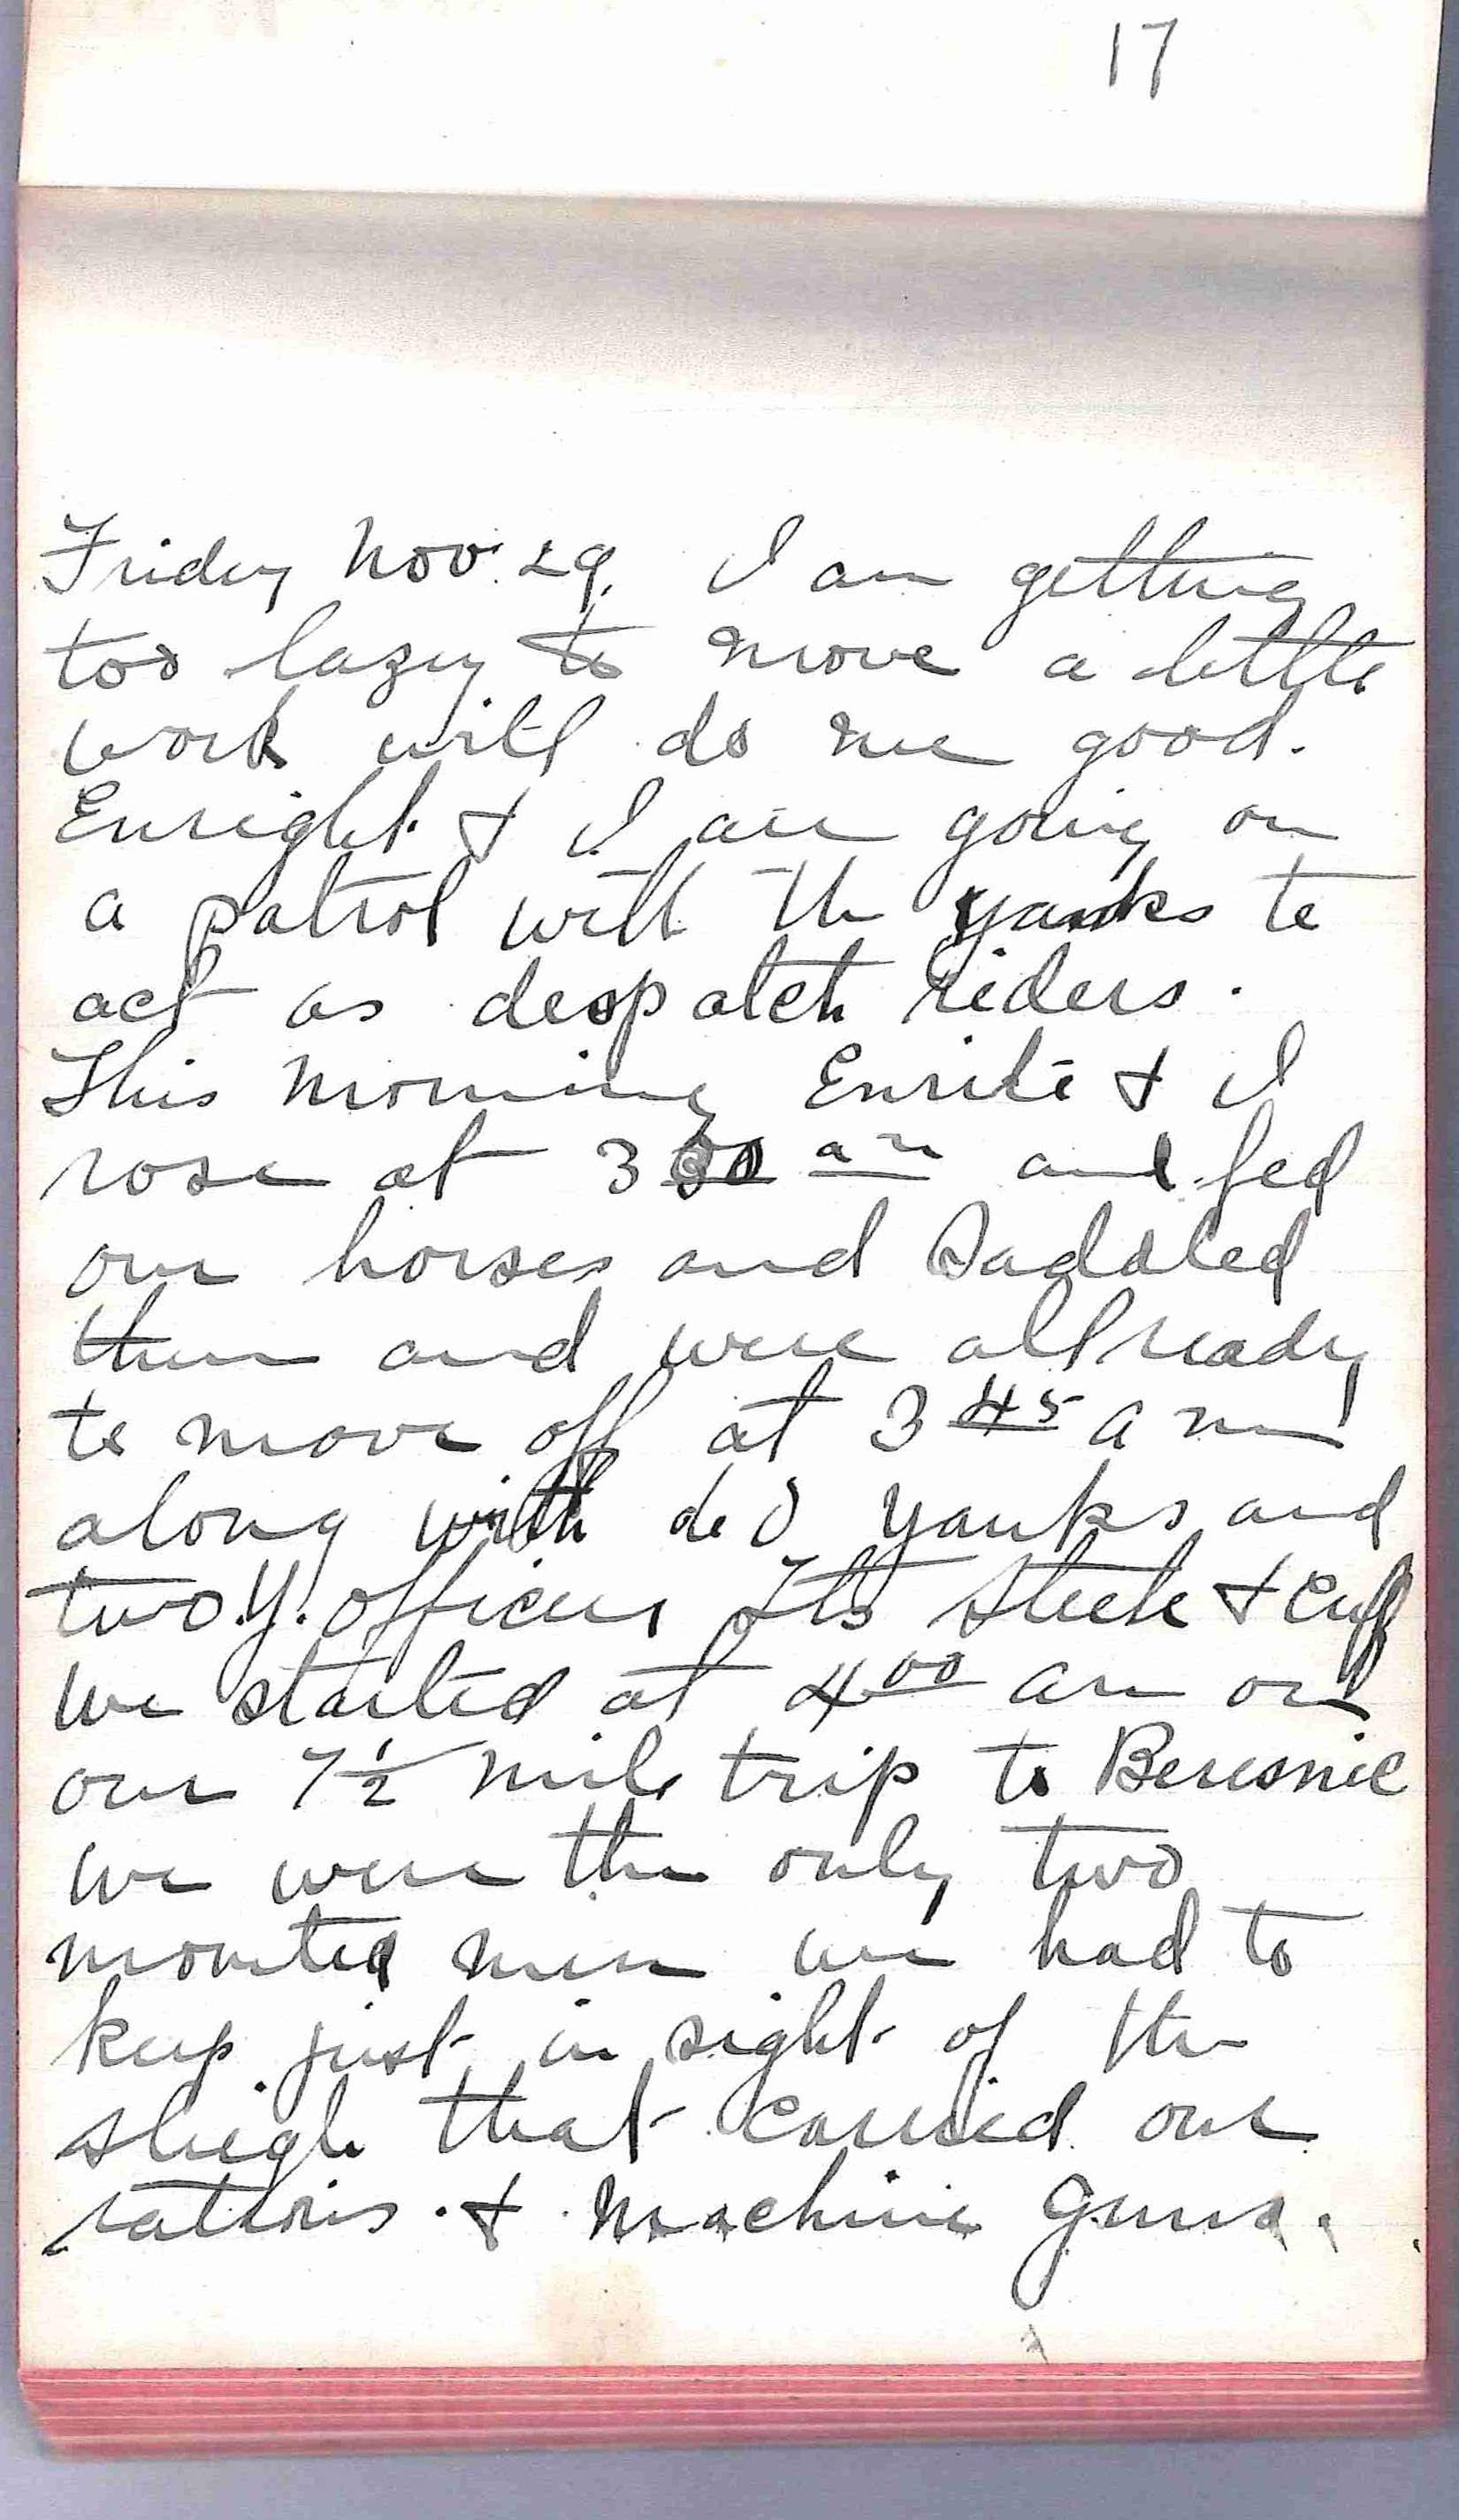 17
Friday Nov. 29. I am getting
too lazy to move a little
work will do me good.
Enright & I are going on
a patrol with the Yanks to
act as despatch riders.
This morning Enrite & I
rose at 3 30 am and fed
our horses and saddled
them and were all ready
to move off at 3 45 a m
along with Yanks and
two Y. officers Lts Steele & Cuff
we started at 4 00 am on
our 7 1/2 mile trip to Beresnic
we were the only two
mounted men we had to
keep just in sight of the
sleigh that carried our
rations. & machine guns.